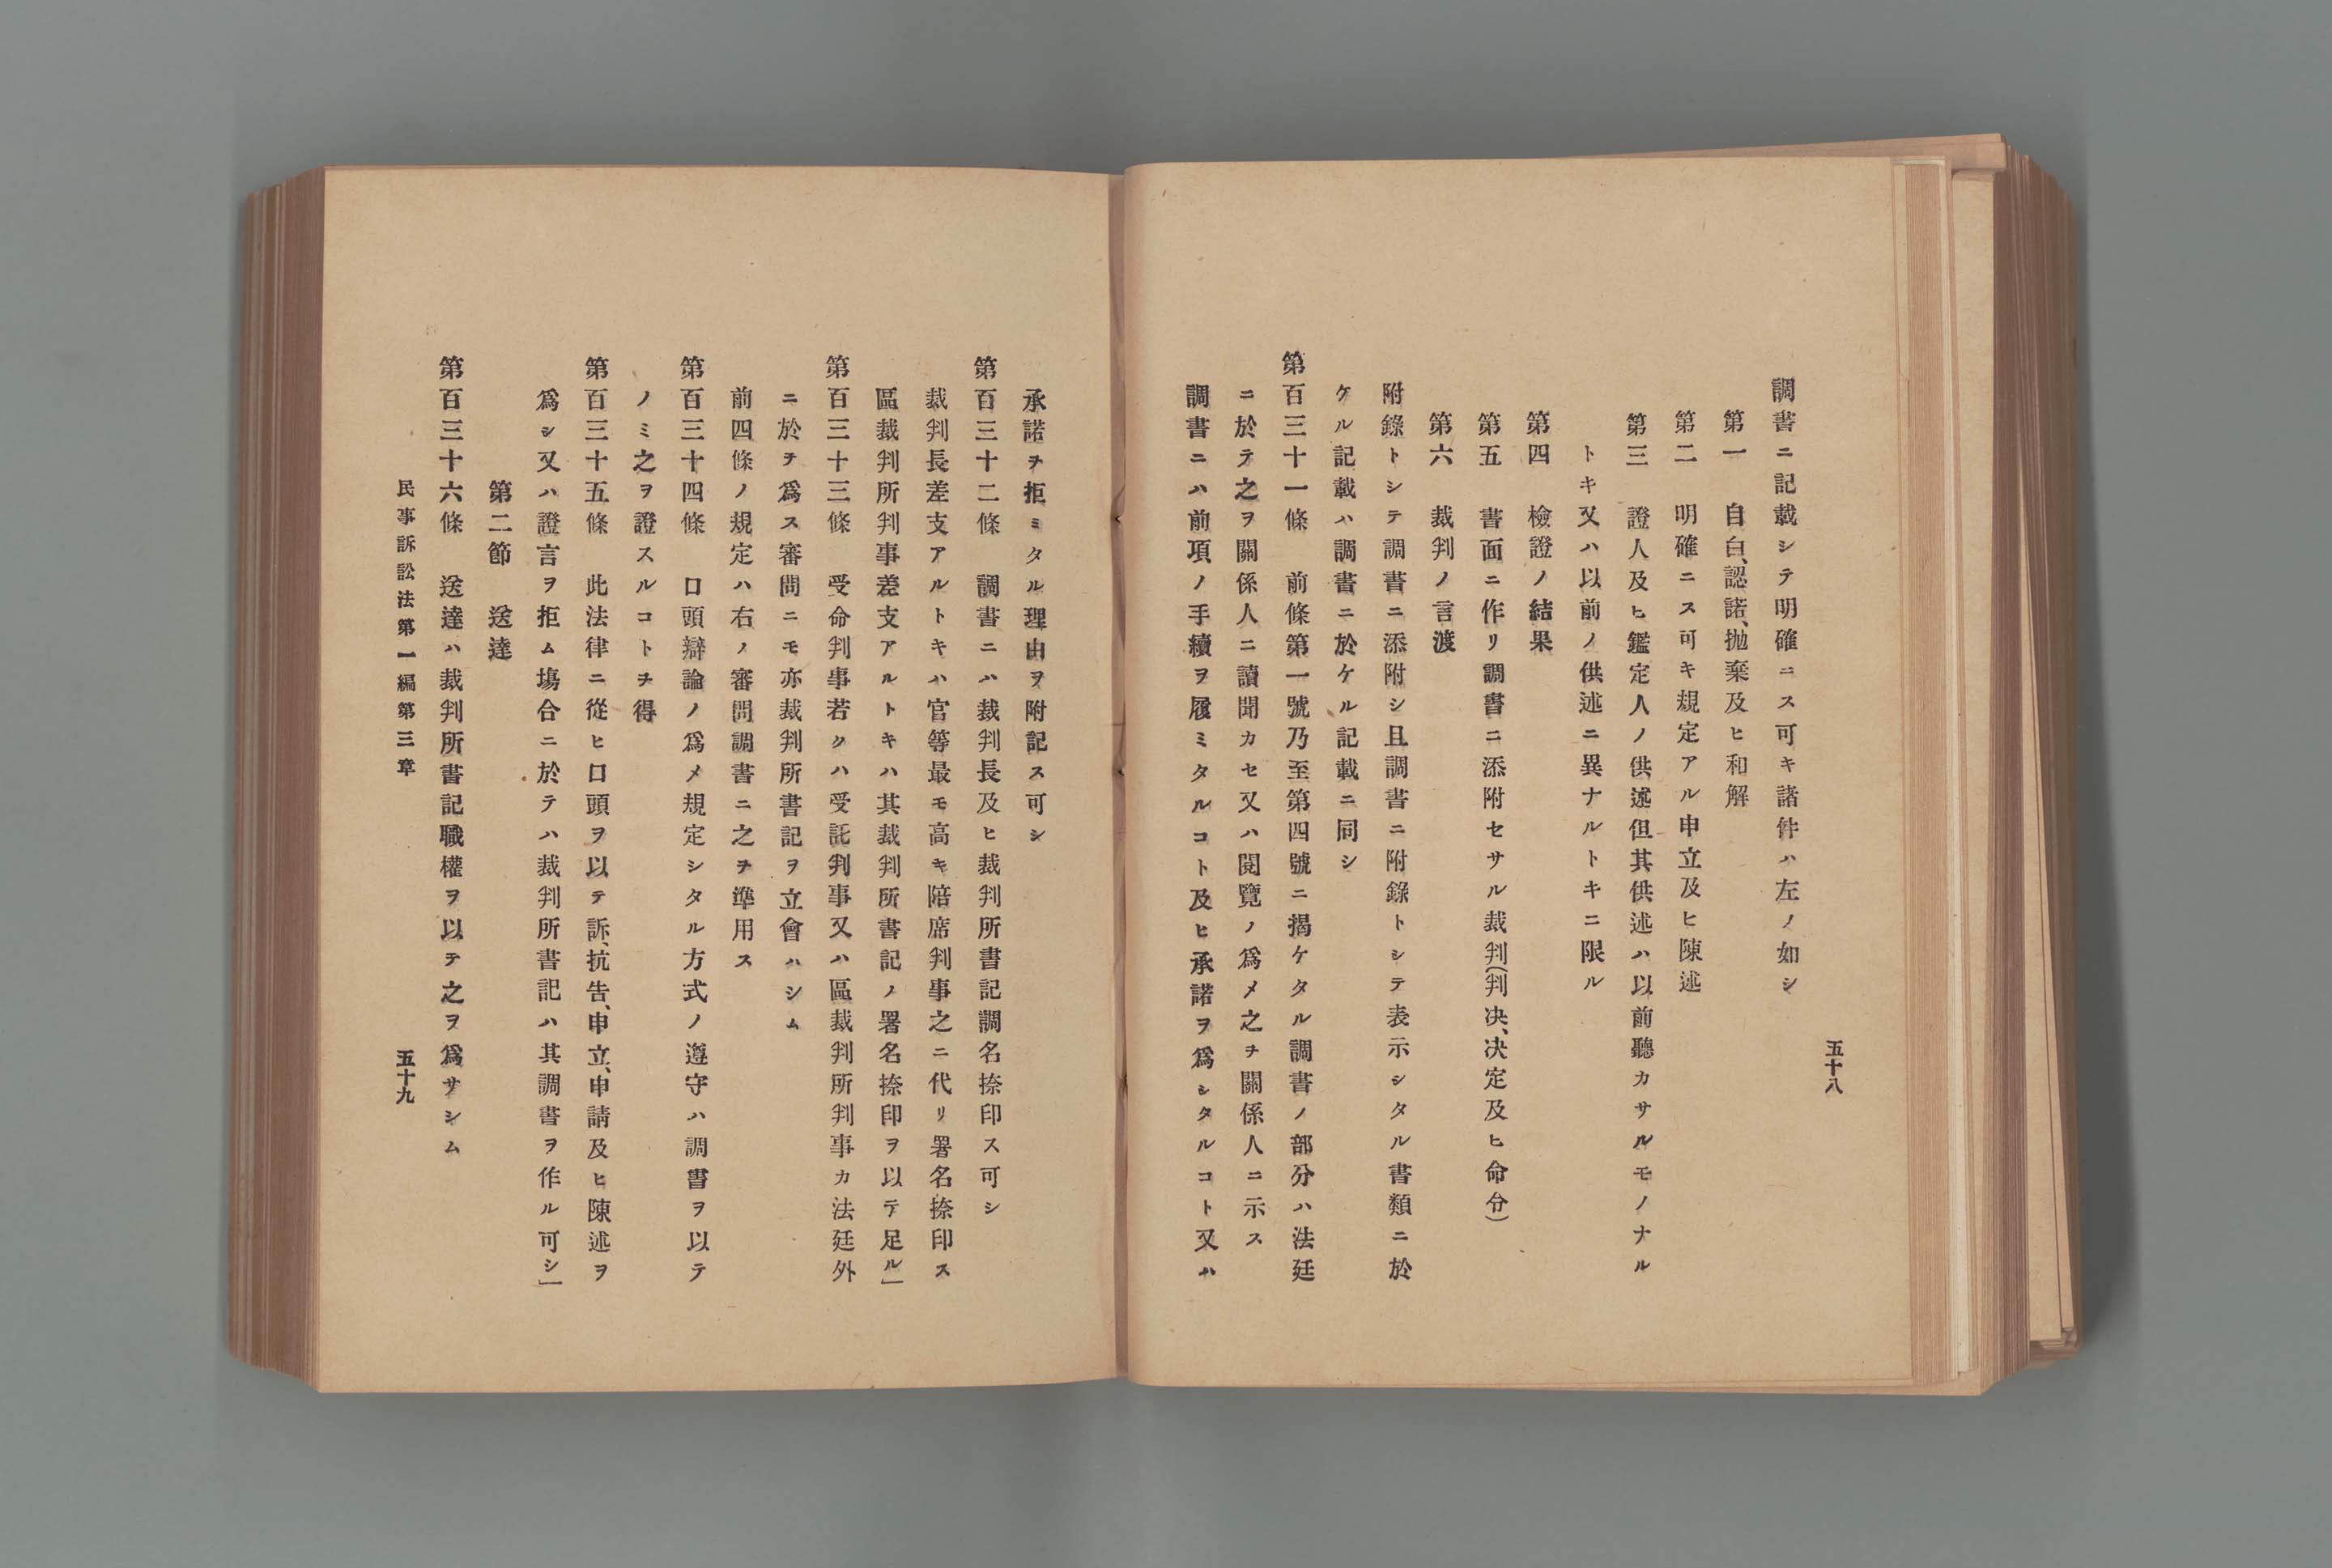 五十八
調書ニ記載シテ明確ニス可キ諸件ハ左ノ如シ
第一　自白、認諾、抛棄及ヒ和解
第二　明確ニス可キ規定アル申立及ヒ陳述
第三　證人及ヒ鑑定人ノ供述但其供述ハ以前聽カサルモノナル
トキ又ハ以前ノ供述ニ異ナルトキニ限ル
第四　檢證ノ結果
第五　書面ニ作リ調書ニ添附セサル裁判(判決、決定及ヒ命令)
第六　裁判ノ言渡
附錄トシテ調書ニ添附シ且調書ニ附錄トシテ表示シタル書類ニ於
ケル記載ハ調書ニ於ケル記載ニ同シ
第百三十一條　前條第一號乃至第四號ニ揭ケタル調書ノ部分ハ法廷
ニ於テ之ヲ關係人ニ讀聞カセ又ハ閱覽ノ爲メ之ヲ關係人ニ示ス
調書ニハ前項ノ手續ヲ履ミタルコト及ヒ承諾ヲ爲シタルコト又ハ
承諾ヲ拒ミタル理由ヲ附記ス可シ
第百三十二條　調書ニハ裁判長及ヒ裁判所書記調名捺印ス可シ
裁判長差支アルトキハ官等最モ高キ陪席判事之ニ代リ署名捺印ス
區裁判所判事差支アルトキハ其裁判所書記ノ署名捺印ヲ以テ足ル」
第百三十三條　受命判事若クハ受託判事又ハ區裁判所判事カ法廷外
ニ於テ爲ス審問ニモ亦裁判所書記ヲ立會ハシム
前四條ノ規定ハ右ノ審問調書ニ之ヲ準用ス
第百三十四條　口頭辯論ノ爲メ規定シタル方式ノ遵守ハ調書ヲ以テ
ノミ之ヲ證スルコトヲ得
第百三十五條　此法律ニ從ヒ口頭ヲ以テ訴、抗告、申立、申請及ヒ陳述ヲ
爲シ又ハ證言ヲ拒ム塲合ニ於テハ裁判所書記ハ其調書ヲ作ル可シ」
第二節　送達
第百三十六條　送達ハ裁判所書記職權ヲ以テ之ヲ爲サシム
民事訴訟法第一編第三章　五十九